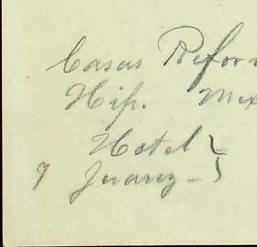 Casas Refor
Hip. Mex
Hotel }
7 Juarez - }